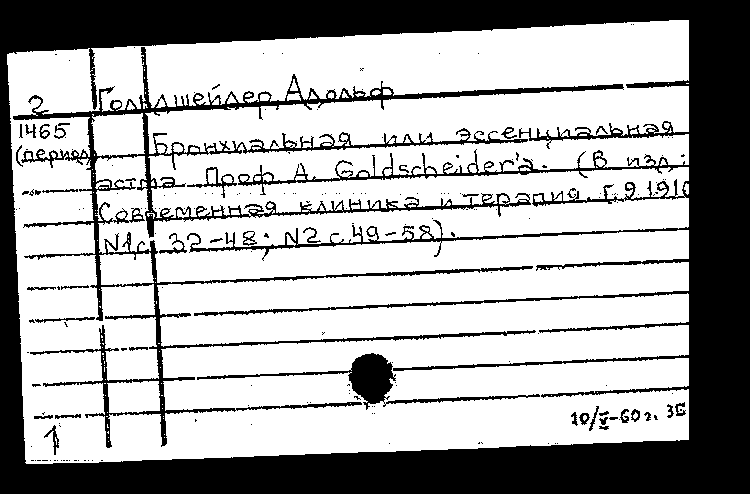 2 Гольдшейдер, Адольф
1465
(период) Бронхиальная или эссенциальная
астма Проф А. Goldscheider'a. (В изд.:
Современная клиника и терапия. Г. 9 1910
N1, с. 32-48; N2 с. 49-58).
1
10/V-60 г. ЗБ